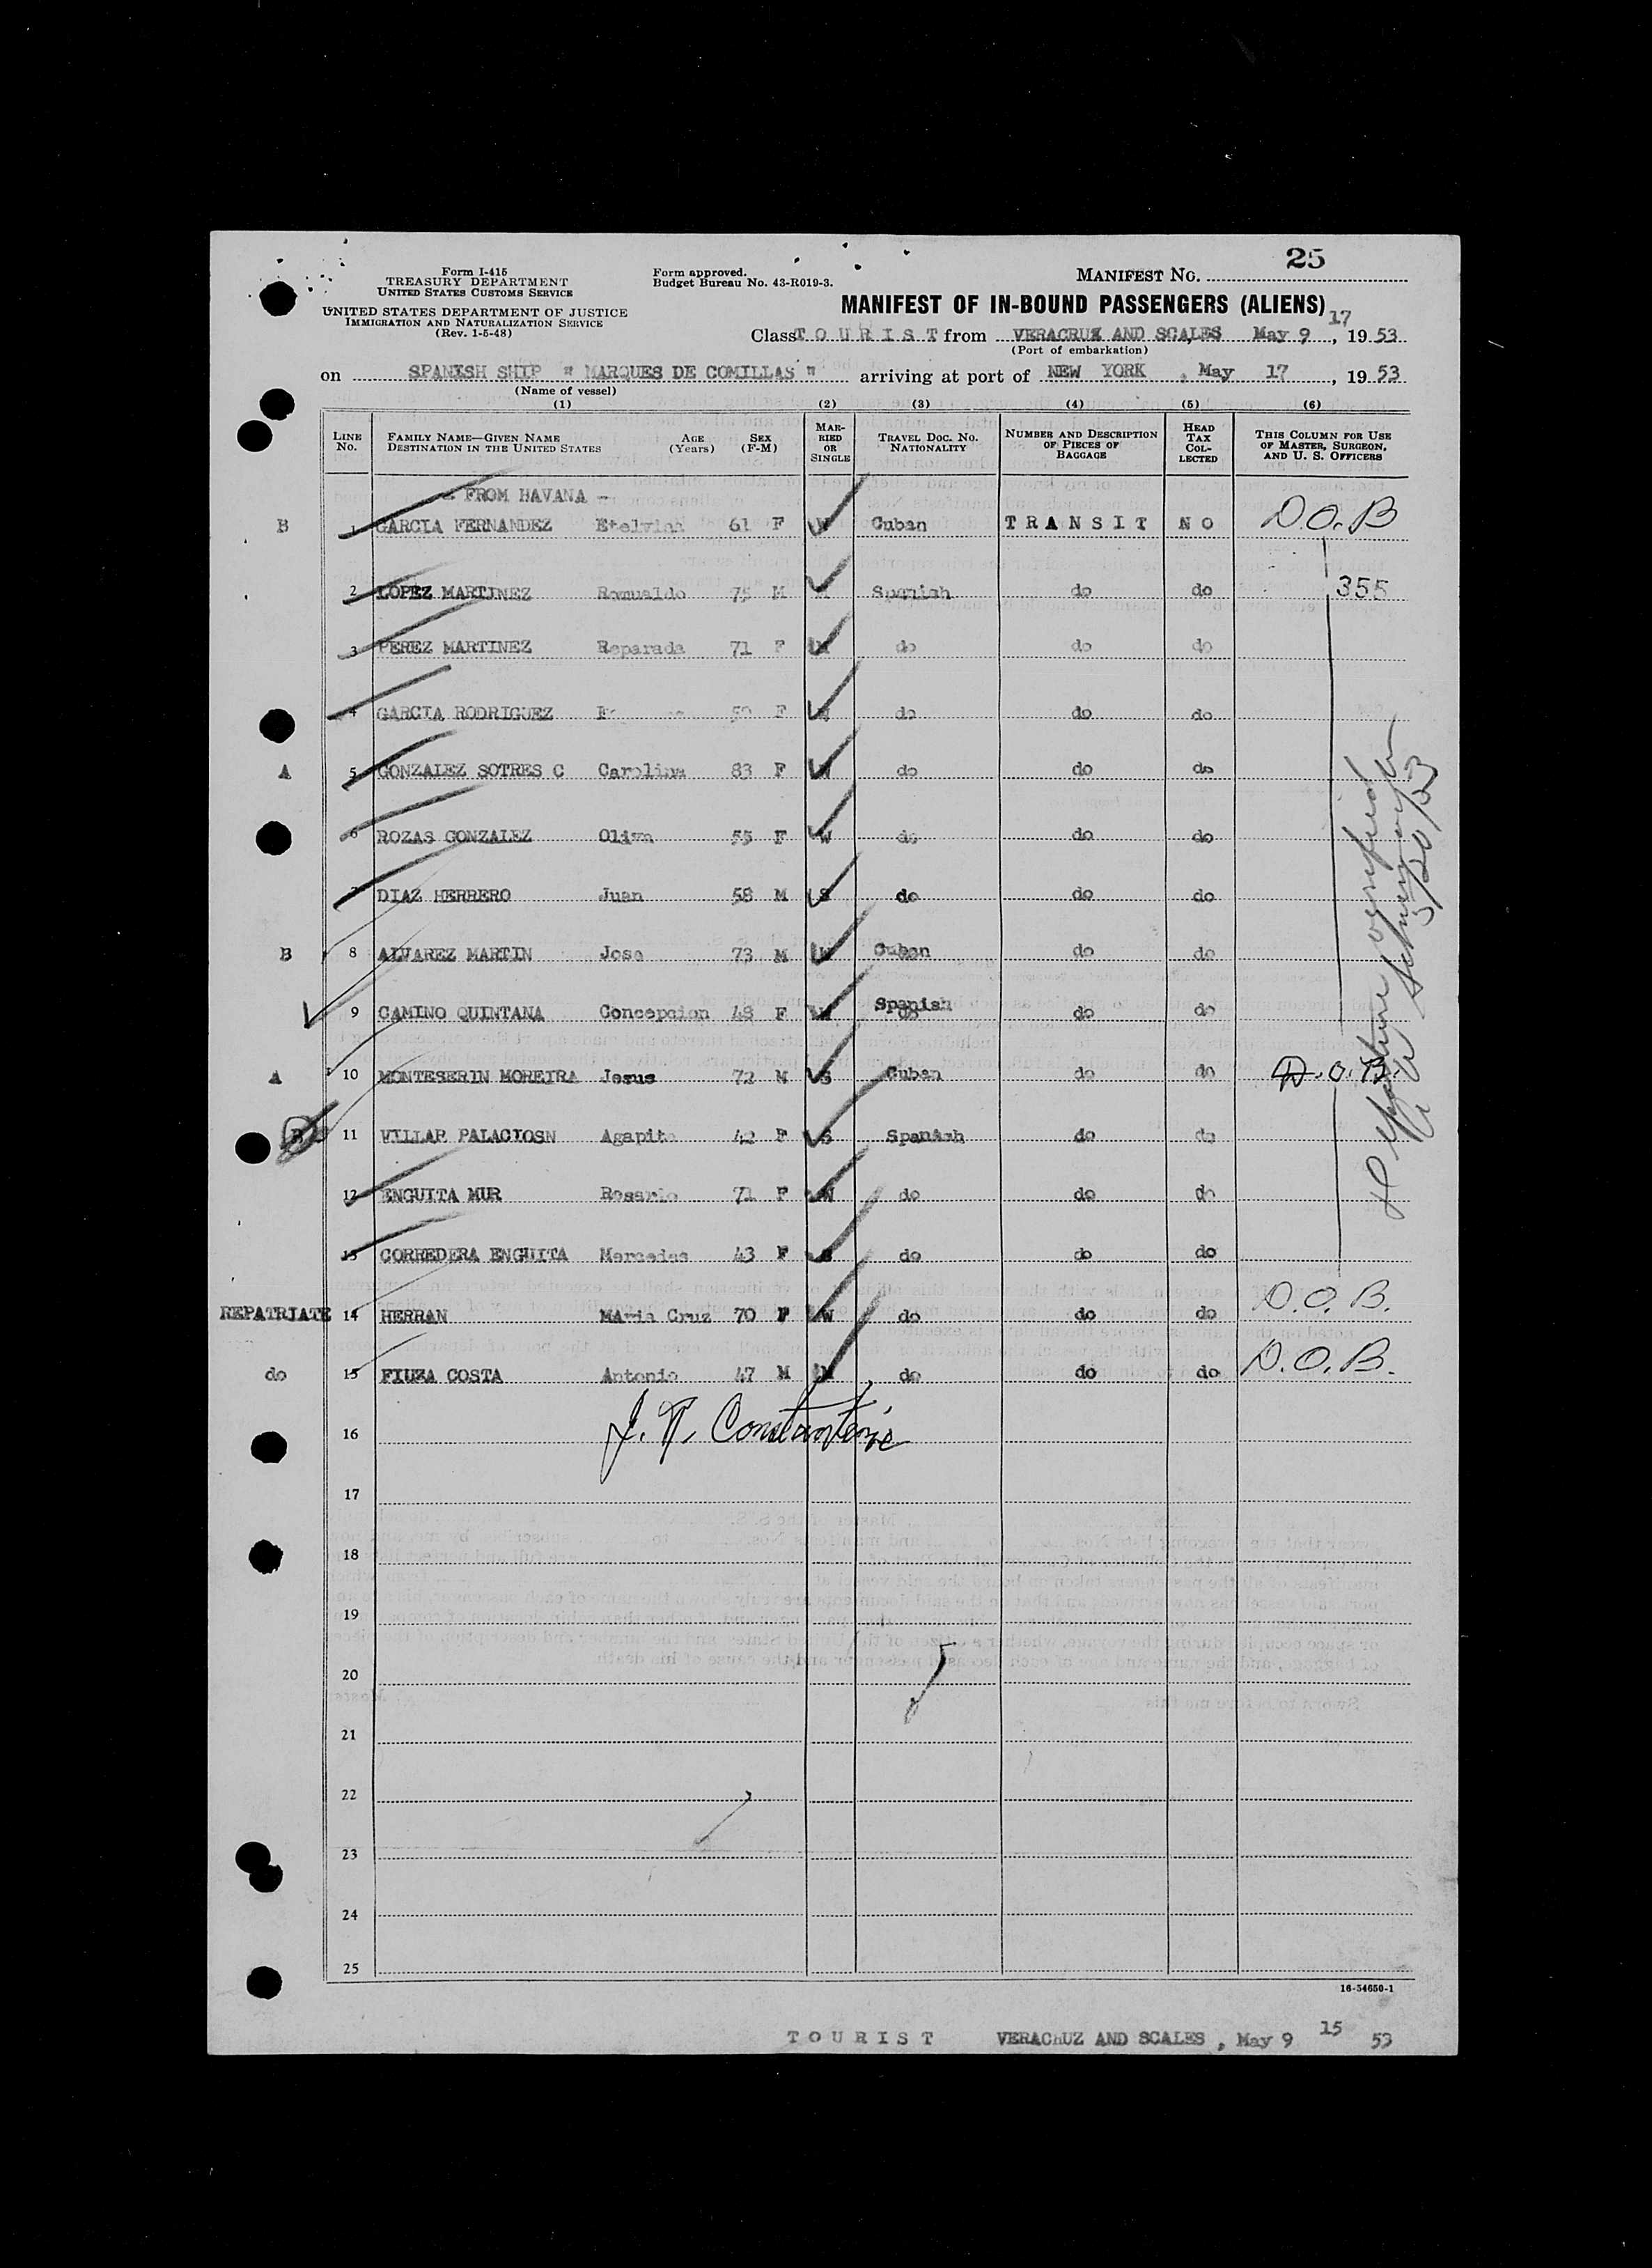 25
Form I-415
TREASURY DEPARTMENT
UNITED STATES CUSTOMS SERVICE
UNITED STATES DEPARTMENT OF JUSTICE
IMMIGRATION AND NATURALIZATION SERVICE
(Rev. 1-5-48)
Form approved.
Budget Bureau No. 43-R019-3.
MANIFEST NO.
MANIFEST OF IN-BOUND PASSENGERS (ALIENS)
17
Class T O U R I S T from VERACRUZ AND SCALES May 9, 19 53
(Port of embarkation)
on SPANISH SHIP " MARQUES DE COMILLAS " arriving at port of NEW YORK, May 17, 19 53
(Name of vessel)
(1) (2) (3) (4) (5) (6)
LINE NO. FAMILY NAME—GIVEN NAME DESTINATION IN THE UNITED STATES AGE (Years) SEX (F-M) MARRIED OR SINGLE TRAVEL DOC. NO. NATIONALITY NUMBER AND DESCRIPTION OF PIECES OF BAGGAGE HEAD TAX COLLECTED THIS COLUMN FOR USE OF MASTER, SURGEON, AND U. S. OFFICERS
- FROM HAVANA -
B 1 GARCIA FERNANDEZ Etelvina 61 F W Cuban T R A N S I T N O D.O.B
2 LOPEZ MARTINEZ Romualdo 75 M M Spanish do do 355
3 PEREZ MARTINEZ Reparada 71 F M do do do
4 GARCIA RODRIGUEZ 59 F do do do
A 5 GONZALEZ SOTRES C Carolina 83 F W do do do
6 ROZAS GONZALEZ Oliva 55 F W do do do
7 DIAZ HERRERO Juan 58 M S do do do
B 8 ALVAREZ MARTIN Jose 73 M Cuban do do
9 CAMINO QUINTANA Concepcion 48 F Spanish do do do
A 10 MONTESERIN MOREIRA Jesus 72 M S Cuban do do D.O.B.
B 11 VILLAR PALACIOSN Agapita 42 F S Spanish do do
12 ENGUITA MUR Rosario 71 F W do do do
13 CORREDERA ENGUITA Mercedes 43 F S do do do
REPATRIATE 14 HERRAN MAria Cruz 70 F W do do do D.O.B.
do 15 FIUZA COSTA Antonio 47 M M do do do D.O.B.
Departure verified
5/20/53
16
J. N. Constantine
17
18
19
20
21
22
23
24
25
16-54650-1
T O U R I S T VERACRUZ AND SCALES, May 9 15 53